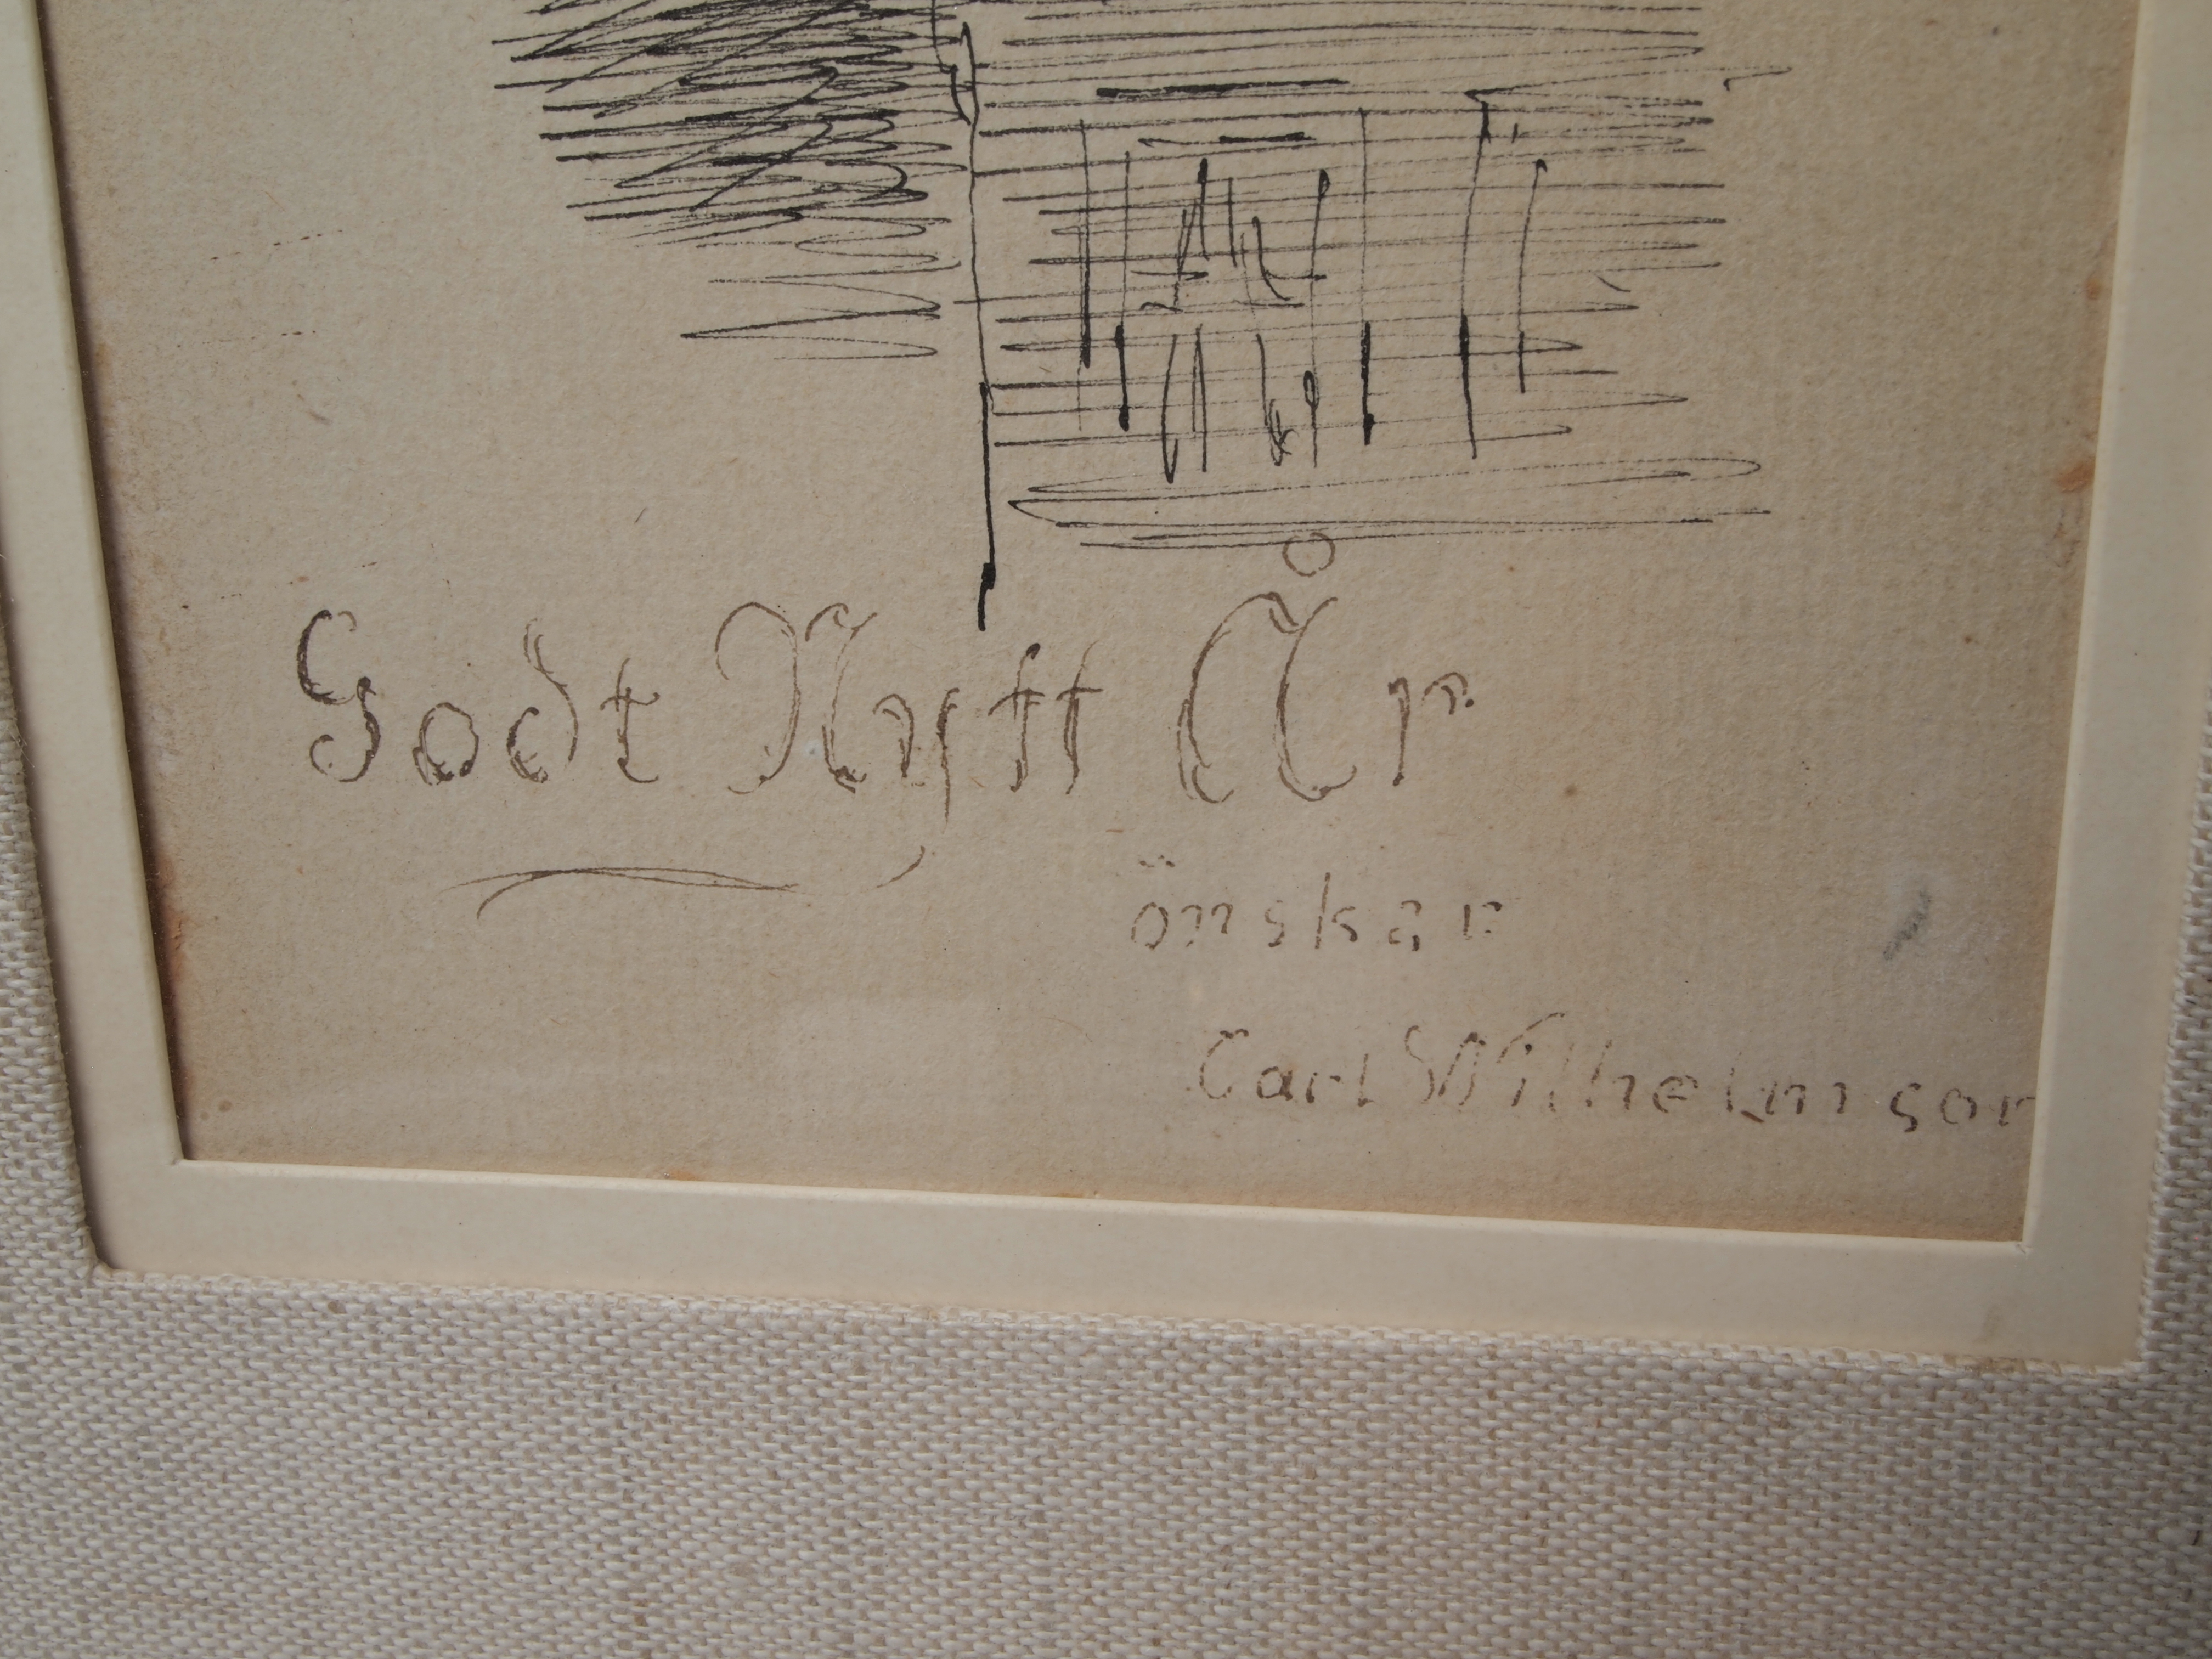 Godt Nytt År
önskar
Carl Wilhelmson